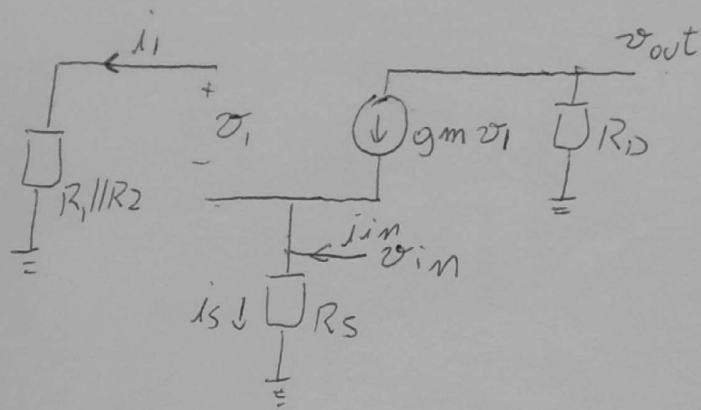 i1
vout
+
v1
-
gm v1
RD
R1//R2
iin
vin
is ↓ RS